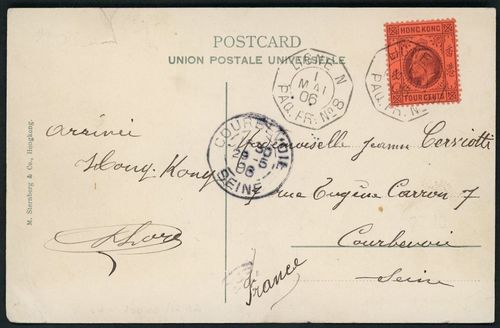 POSTCARD
UNION POSTALE UNIVERSELLE
HONG KONG
FOUR CENTS
LIGNE N
1
MAI
06
PAQ. FR. Nº 8
PAQ. FR. Nº
COURBEVOIE
29 - 5
06
SEINE
M. Sternberg & Co., Hongkong.
Arrivée
Hong Kong
Mademoiselle Jeanne
rue Eugène Caron 7
Courbevoie
Seine
France